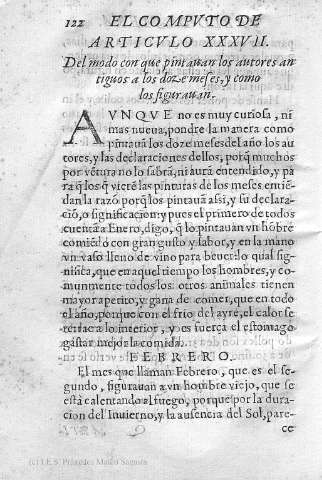 122 EL COMPVTO DE
ARTICVLO XXXVII.
Del modo con que pintauan los autores an
tiguos a los doze meses, y como
los figurauan.
AVNQVE no es muy curiosa, ni
mas nueua, pondre la manera como
pintauã los doze meses del año los au
tores, y las declaraciones dellos, porq̃ muchos
por vẽtura no lo sabrã, ni aurã entendido, y pa
ra q̃ los q̃ vierẽ las pinturas de los meses entiẽ
dan la razõ porq̃ los pintauã assi, y su declara
ciõ, o significacion: y pues el primero de todos
cuentã a Enero, digo, q̃ lo pintauan vn hõbre
comiẽdo con gran gusto y labor, y en la mano
vn vaso lleno de vino para beuer: lo qual sig-
nifica, que en aquel tiempo los hombres, y co-
munmente todos los otros animales tienen
mayor apetito, y gana de comer, que en todo
el año, porque con el frio del ayre, el calor se
retrae a lo interior, y es fuerça el estomago
gastar mejor la comida.
FEBRERO.
El mes que llaman Febrero, que es el se-
gundo, figurauan a vn hombre viejo, que se
està calentando al fuego, porque por la dura-
cion del Inuierno, y la ausencia del Sol, pare-
ce
(c) I.E.S. P. Mateo Sagasta